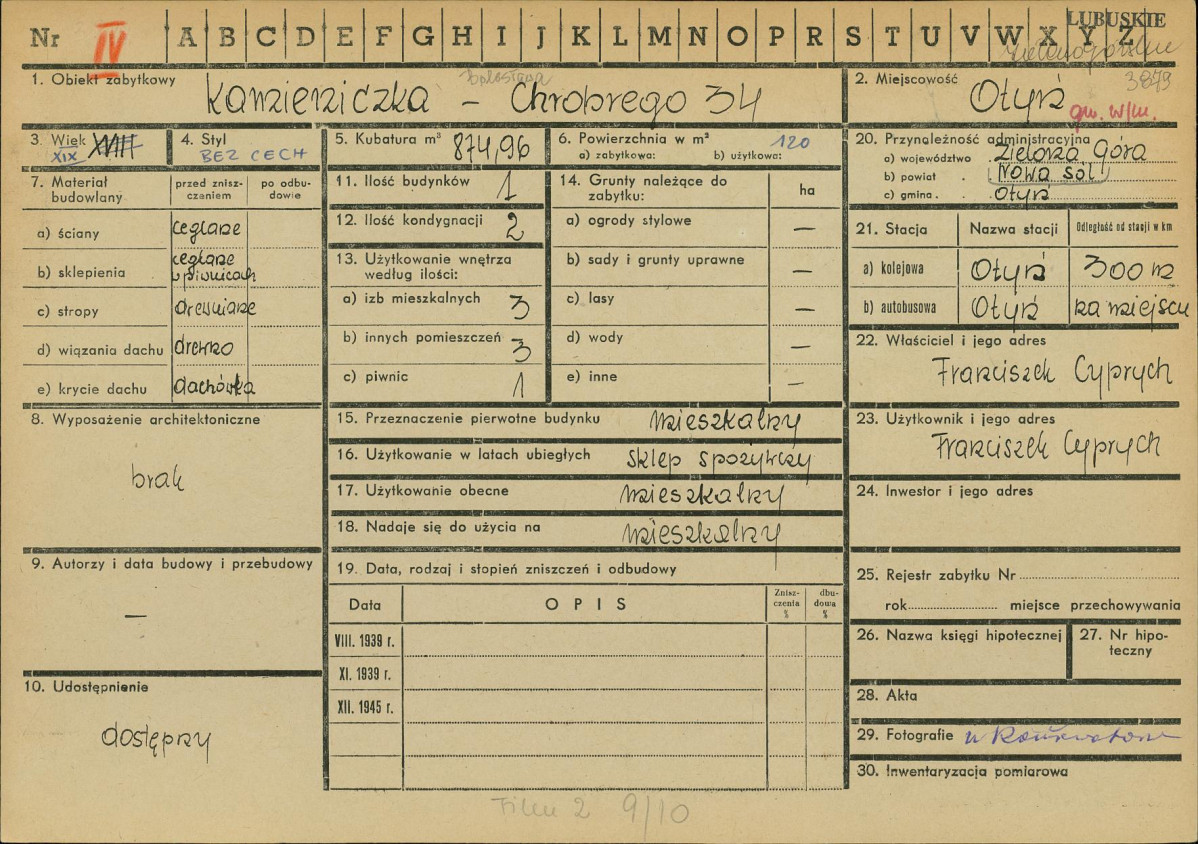 LUBUSKIE
Nr IV A B C D E F G H I J K L M N O P R S T U V W X Y Z
Zielonogórskie
3879
1. Obiekt zabytkowy
Bolesława
Kamieniczka – Chrobrego 34
2. Miejscowość
Otyń
gm. w/m.
3. Wiek XVIII
XIX
4. Styl
BEZ CECH
5. Kubatura m³ 874,96
6. Powierzchnia w m² 120
a) zabytkowa: b) użytkowa:
20. Przynależność administracyjna
a) województwo Zielona Góra
b) powiat Nowa Sól
c) gmina Otyń
7. Materiał budowlany
przed zniszczeniem
po odbudowie
a) ściany ceglane
b) sklepienia ceglane w piwnicach
c) stropy drewniane
d) wiązania dachu drewno
e) krycie dachu dachówka
11. Ilość budynków 1
12. Ilość kondygnacji 2
13. Użytkowanie wnętrza
według ilości:
a) izb mieszkalnych 3
b) innych pomieszczeń 3
c) piwnic 1
14. Grunty należące do
zabytku:
ha
a) ogrody stylowe –
b) sady i grunty uprawne –
c) lasy –
d) wody –
e) inne –
21. Stacja Nazwa stacji Odległość od stacji w km
a) kolejowa Otyń 300 m
b) autobusowa Otyń na miejscu
22. Właściciel i jego adres
Franciszek Cyprych
23. Użytkownik i jego adres
Franciszek Cyprych
24. Inwestor i jego adres
8. Wyposażenie architektoniczne
brak
15. Przeznaczenie pierwotne budynku mieszkalny
16. Użytkowanie w latach ubiegłych sklep spożywczy
17. Użytkowanie obecne mieszkalny
18. Nadaje się do użycia na mieszkalny
9. Autorzy i data budowy i przebudowy
–
10. Udostępnienie
dostępny
19. Data, rodzaj i stopień zniszczeń i odbudowy
Data OPIS Zniszczenia % dbudowa %
VIII. 1939 r.
XI. 1939 r.
XII. 1945 r.
25. Rejestr zabytku Nr
rok miejsce przechowywania
26. Nazwa księgi hipotecznej
27. Nr hipoteczny
28. Akta
29. Fotografie u Konserwatora
30. Inwentaryzacja pomiarowa
Film 2 9/10